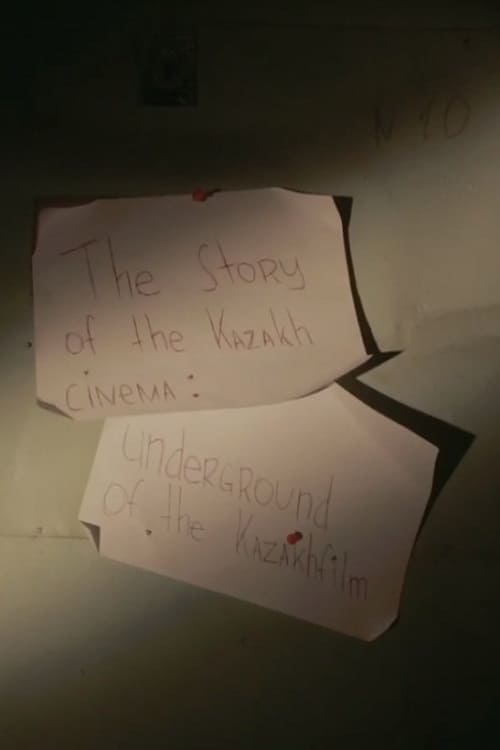 N 10
The Story
of the Kazakh
cinema:
Underground
of the Kazakhfilm